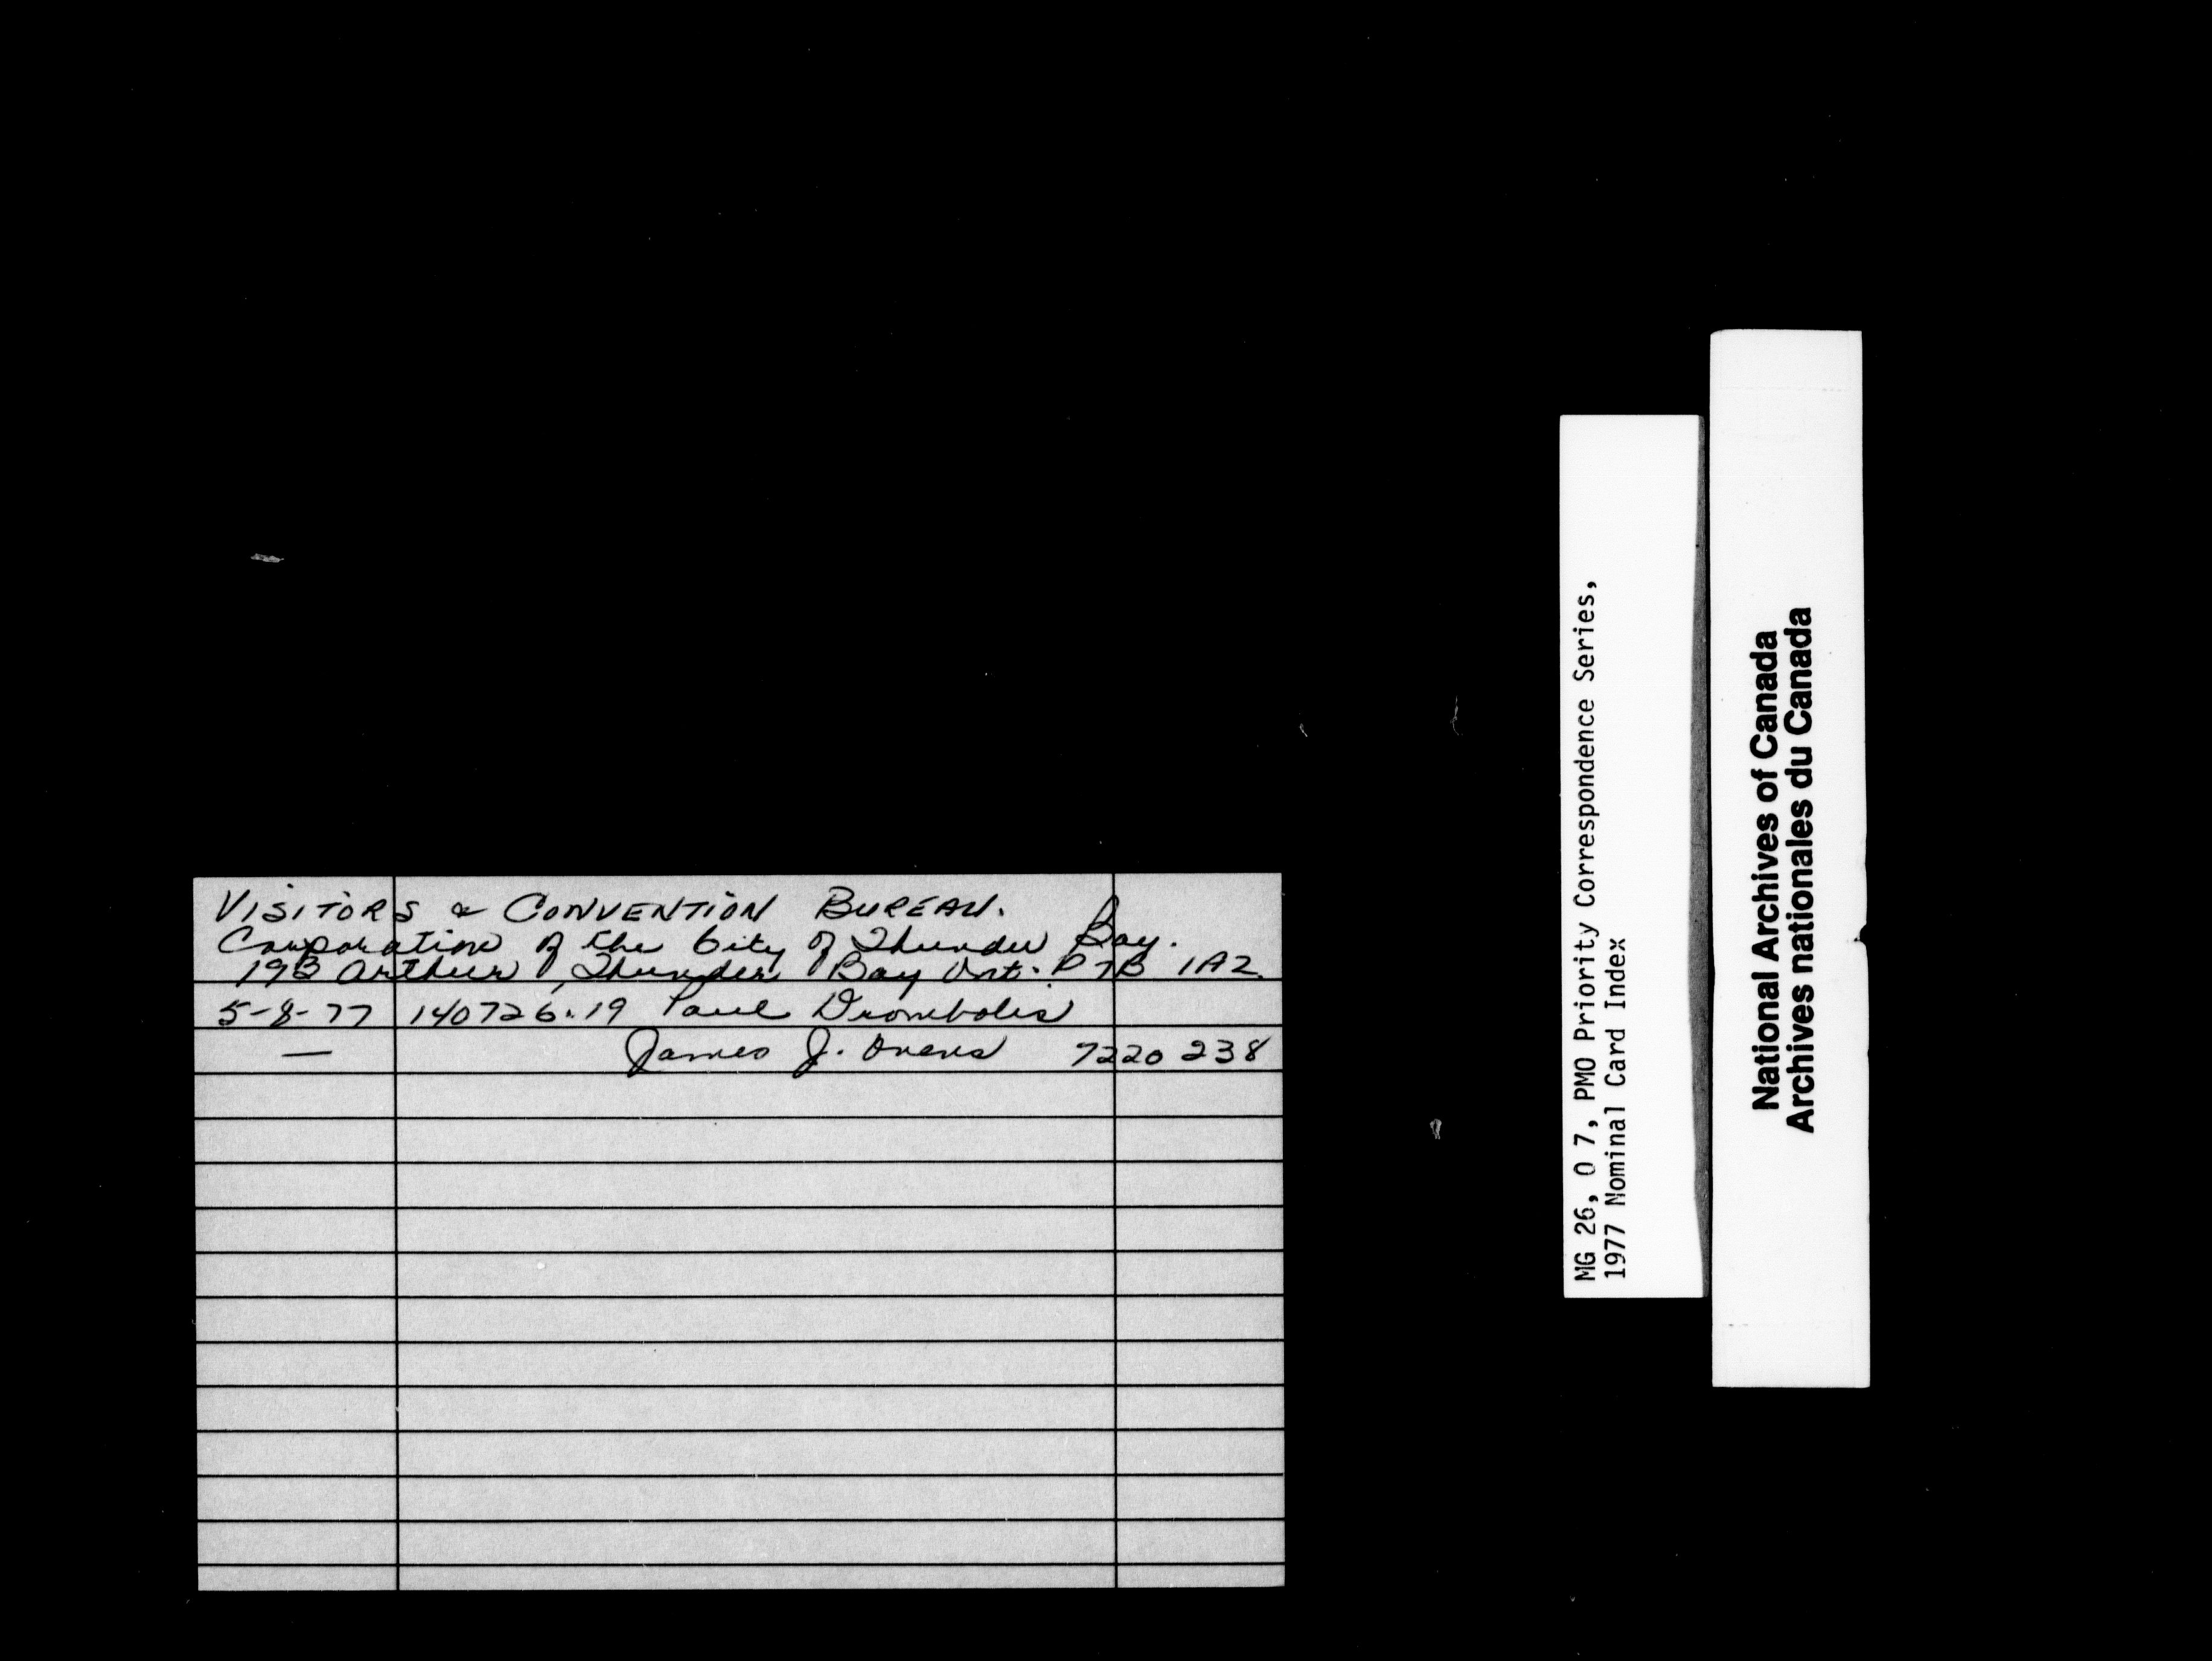 VISITORS & CONVENTION BUREAU.
Corporation of the City of Thunder Bay.
193 Arthur, Thunder Bay Ont. P7B 1A2.
5-8-77 140726.19 Paul Drombolis
— James J. Evens 7220 238
MG 26, O 7, PMO Priority Correspondence Series,
1977 Nominal Card Index
National Archives of Canada
Archives nationales du Canada